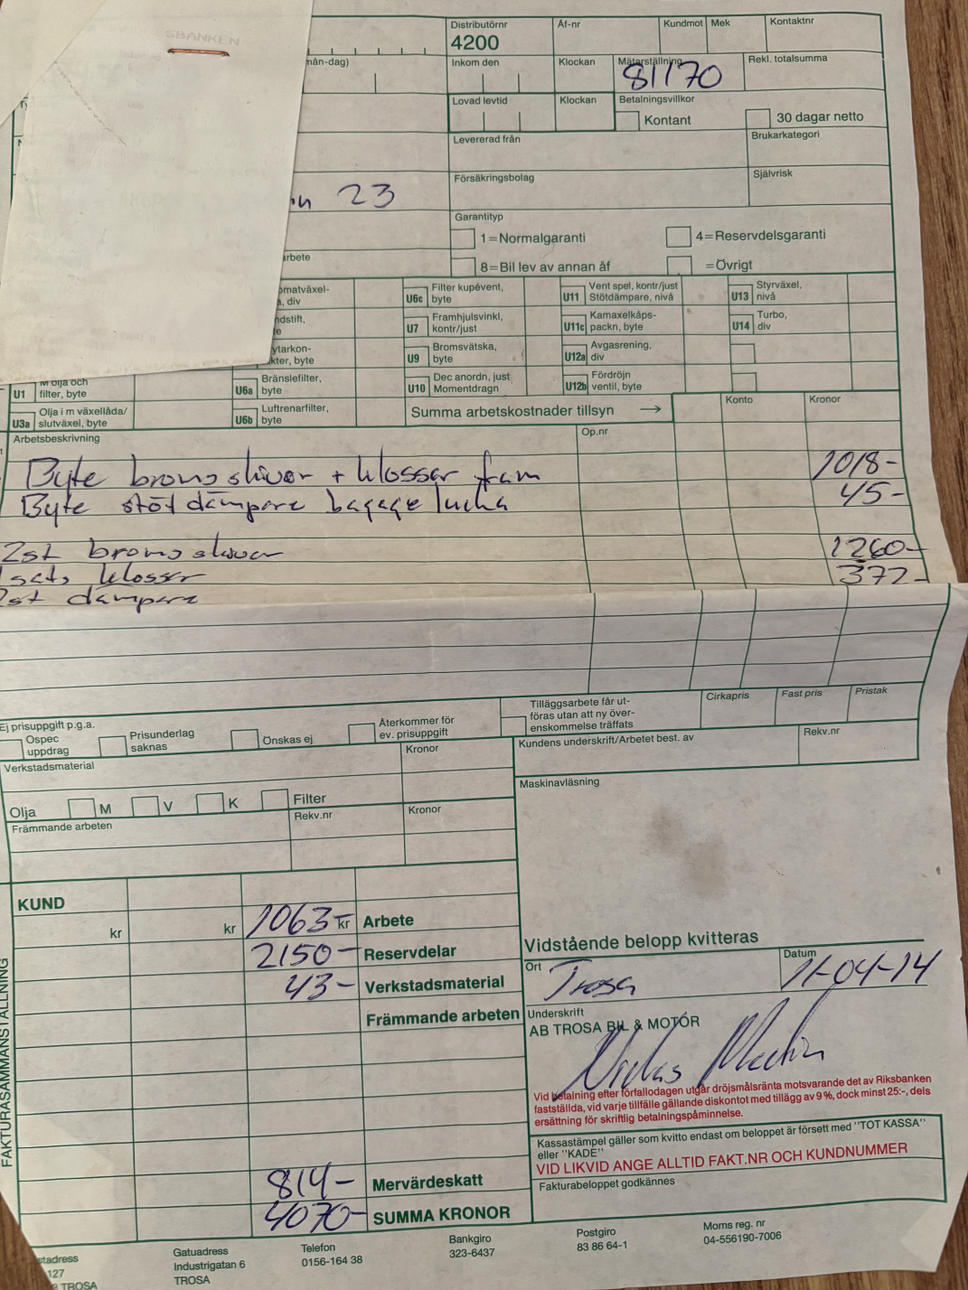 SBANKEN
Distributörnr
4200
Åf-nr
Kundmot
Mek
Kontaktnr
mån-dag)
Inkom den
Klockan
Mätarställning
81170
Rekl. totalsumma
Lovad levtid
Klockan
Betalningsvillkor
Kontant
30 dagar netto
Levererad från
Brukarkategori
Försäkringsbolag
Självrisk
23
Garantityp
1=Normalgaranti
4=Reservdelsgaranti
arbete
8=Bil lev av annan åf
=Övrigt
omatväxel-
, div
U6c Filter kupévent,
byte
U11 Vent spel, kontr/just
Stötdämpare, nivå
U13 Styrväxel,
nivå
ndstift,
U7 Framhjulsvinkl,
kontr/just
U11c Kamaxelkåps-
packn, byte
U14 Turbo,
div
ytarkon-
kter, byte
U9 Bromsvätska,
byte
U12a Avgasrening,
div
U1 M olja och
filter, byte
U6a Bränslefilter,
byte
U10 Dec anordn, just
Momentdragn
U12b Fördröjn
ventil, byte
U3a Olja i m växellåda/
slutväxel, byte
U6b Luftrenarfilter,
byte
Summa arbetskostnader tillsyn →
Konto
Kronor
Arbetsbeskrivning
Op.nr
Byte bromsskivor + klossar fram 1018-
Byte stötdämpare bagagelucka 45-
2st bromsskivor 1260-
1 sats klossar 372-
2st dämpare
Ej prisuppgift p.g.a.
Ospec
uppdrag
Prisunderlag
saknas
Önskas ej
Återkommer för
ev. prisuppgift
Tilläggsarbete får ut-
föras utan att ny över-
enskommelse träffats
Cirkapris
Fast pris
Pristak
Verkstadsmaterial
Kronor
Kundens underskrift/Arbetet best. av
Rekv.nr
Olja
M
V
K
Filter
Maskinavläsning
Främmande arbeten
Rekv.nr
Kronor
FAKTURASAMMANSTÄLLNING
KUND
kr
kr
1063- kr Arbete
2150- Reservdelar
43- Verkstadsmaterial
Främmande arbeten
814- Mervärdeskatt
4070- SUMMA KRONOR
Vidstående belopp kvitteras
Ort
Trosa
Datum
11-04-14
Underskrift
AB TROSA BIL & MOTOR
Vid betalning efter förfallodagen utgår dröjsmålsränta motsvarande det av Riksbanken
fastställda, vid varje tillfälle gällande diskontot med tillägg av 9%, dock minst 25:-, dels
ersättning för skriftlig betalningspåminnelse.
Kassastämpel gäller som kvitto endast om beloppet är försett med "TOT KASSA"
eller "KADE"
VID LIKVID ANGE ALLTID FAKT.NR OCH KUNDNUMMER
Fakturabeloppet godkännes
stadress
127
TROSA
Gatuadress
Industrigatan 6
TROSA
Telefon
0156-164 38
Bankgiro
323-6437
Postgiro
83 86 64-1
Moms reg. nr
04-556190-7006